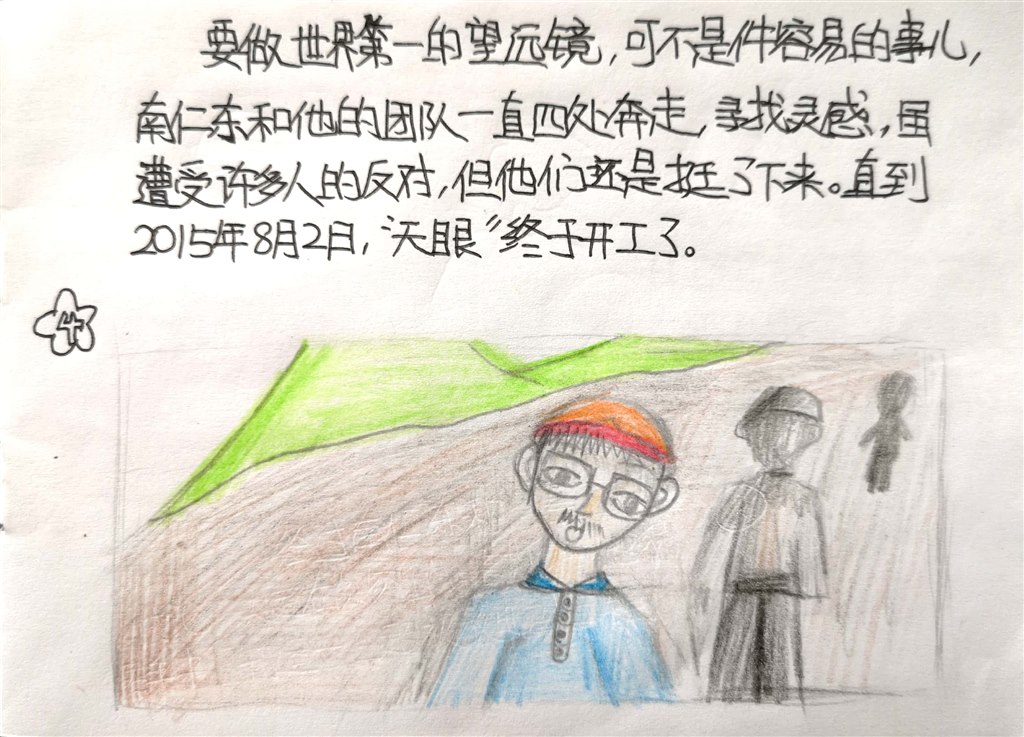 要做世界第一的望远镜,可不是件容易的事儿,
南仁东和他的团队一直四处奔走,寻找灵感,虽
遭受许多人的反对,但他们还是挺了下来。直到
2015年8月2日,“天眼”终于开工了。
4